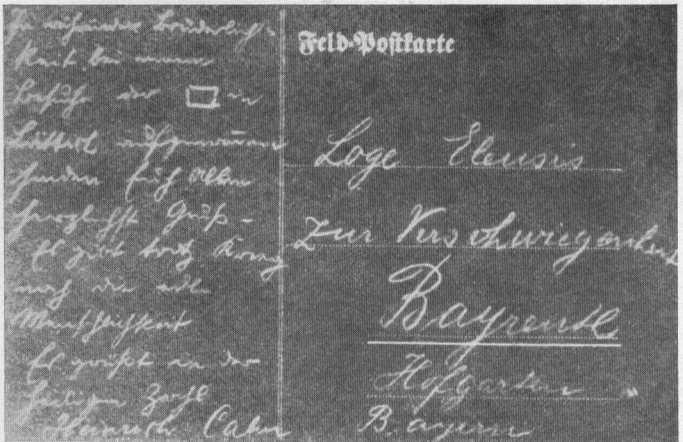 In rührender Brüderlich-
keit bei meinem
Besuche der in
aufgenommen
senden Euch allen
herzlichst Gruß -
Es gibt trotz Krieg
noch die edle
Menschlichkeit
Es grüßt in der
heiligen Zahl
Heinrich Cahn
Feld-Postkarte
Loge Eleusis
zur Verschwiegenheit
Bayreuth
Hofgarten
Bayern